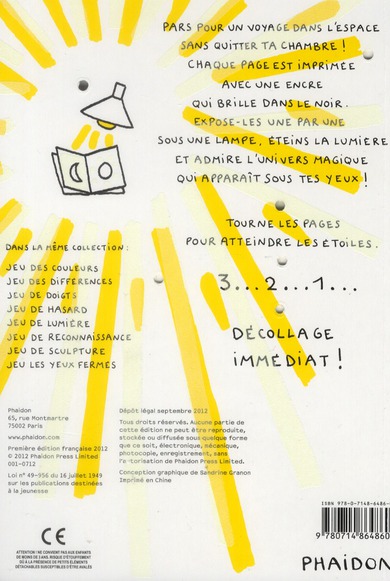 PARS POUR UN VOYAGE DANS L'ESPACE
SANS QUITTER TA CHAMBRE !
CHAQUE PAGE EST IMPRIMÉE
AVEC UNE ENCRE
QUI BRILLE DANS LE NOIR.
EXPOSE-LES UNE PAR UNE
SOUS UNE LAMPE, ÉTEINS LA LUMIÈRE
ET ADMIRE L'UNIVERS MAGIQUE
QUI APPARAÎT SOUS TES YEUX !
TOURNE LES PAGES
POUR ATTEINDRE LES ÉTOILES.
3...2...1...
DÉCOLLAGE
IMMÉDIAT !
DANS LA MÊME COLLECTION :
JEU DES COULEURS
JEU DES DIFFÉRENCES
JEU DE DOIGTS
JEU DE HASARD
JEU DE LUMIÈRE
JEU DE RECONNAISSANCE
JEU DE SCULPTURE
JEU LES YEUX FERMÉS
Phaidon
65, rue Montmartre
75002 Paris
www.phaidon.com
Première édition française 2012
© 2012 Phaidon Press Limited
001-0712
Loi n° 49-956 du 16 juillet 1949
sur les publications destinées
à la jeunesse
Dépôt légal septembre 2012
Tous droits réservés. Aucune partie de
cette édition ne peut être reproduite,
stockée ou diffusée sous quelque forme
que ce soit, électronique, mécanique,
photocopie, enregistrement, sans
l'autorisation de Phaidon Press Limited.
Conception graphique de Sandrine Granon
Imprimé en Chine
CE
ATTENTION ! NE CONVIENT PAS AUX ENFANTS
DE MOINS DE 3 ANS. RISQUE D'ÉTOUFFEMENT
OU À LA PRÉSENCE DE PETITS ÉLÉMENTS
DÉTACHABLES SUSCEPTIBLES D'ÊTRE AVALÉS
ISBN 978-0-7148-6486-
9 780714 864860
PHAIDON